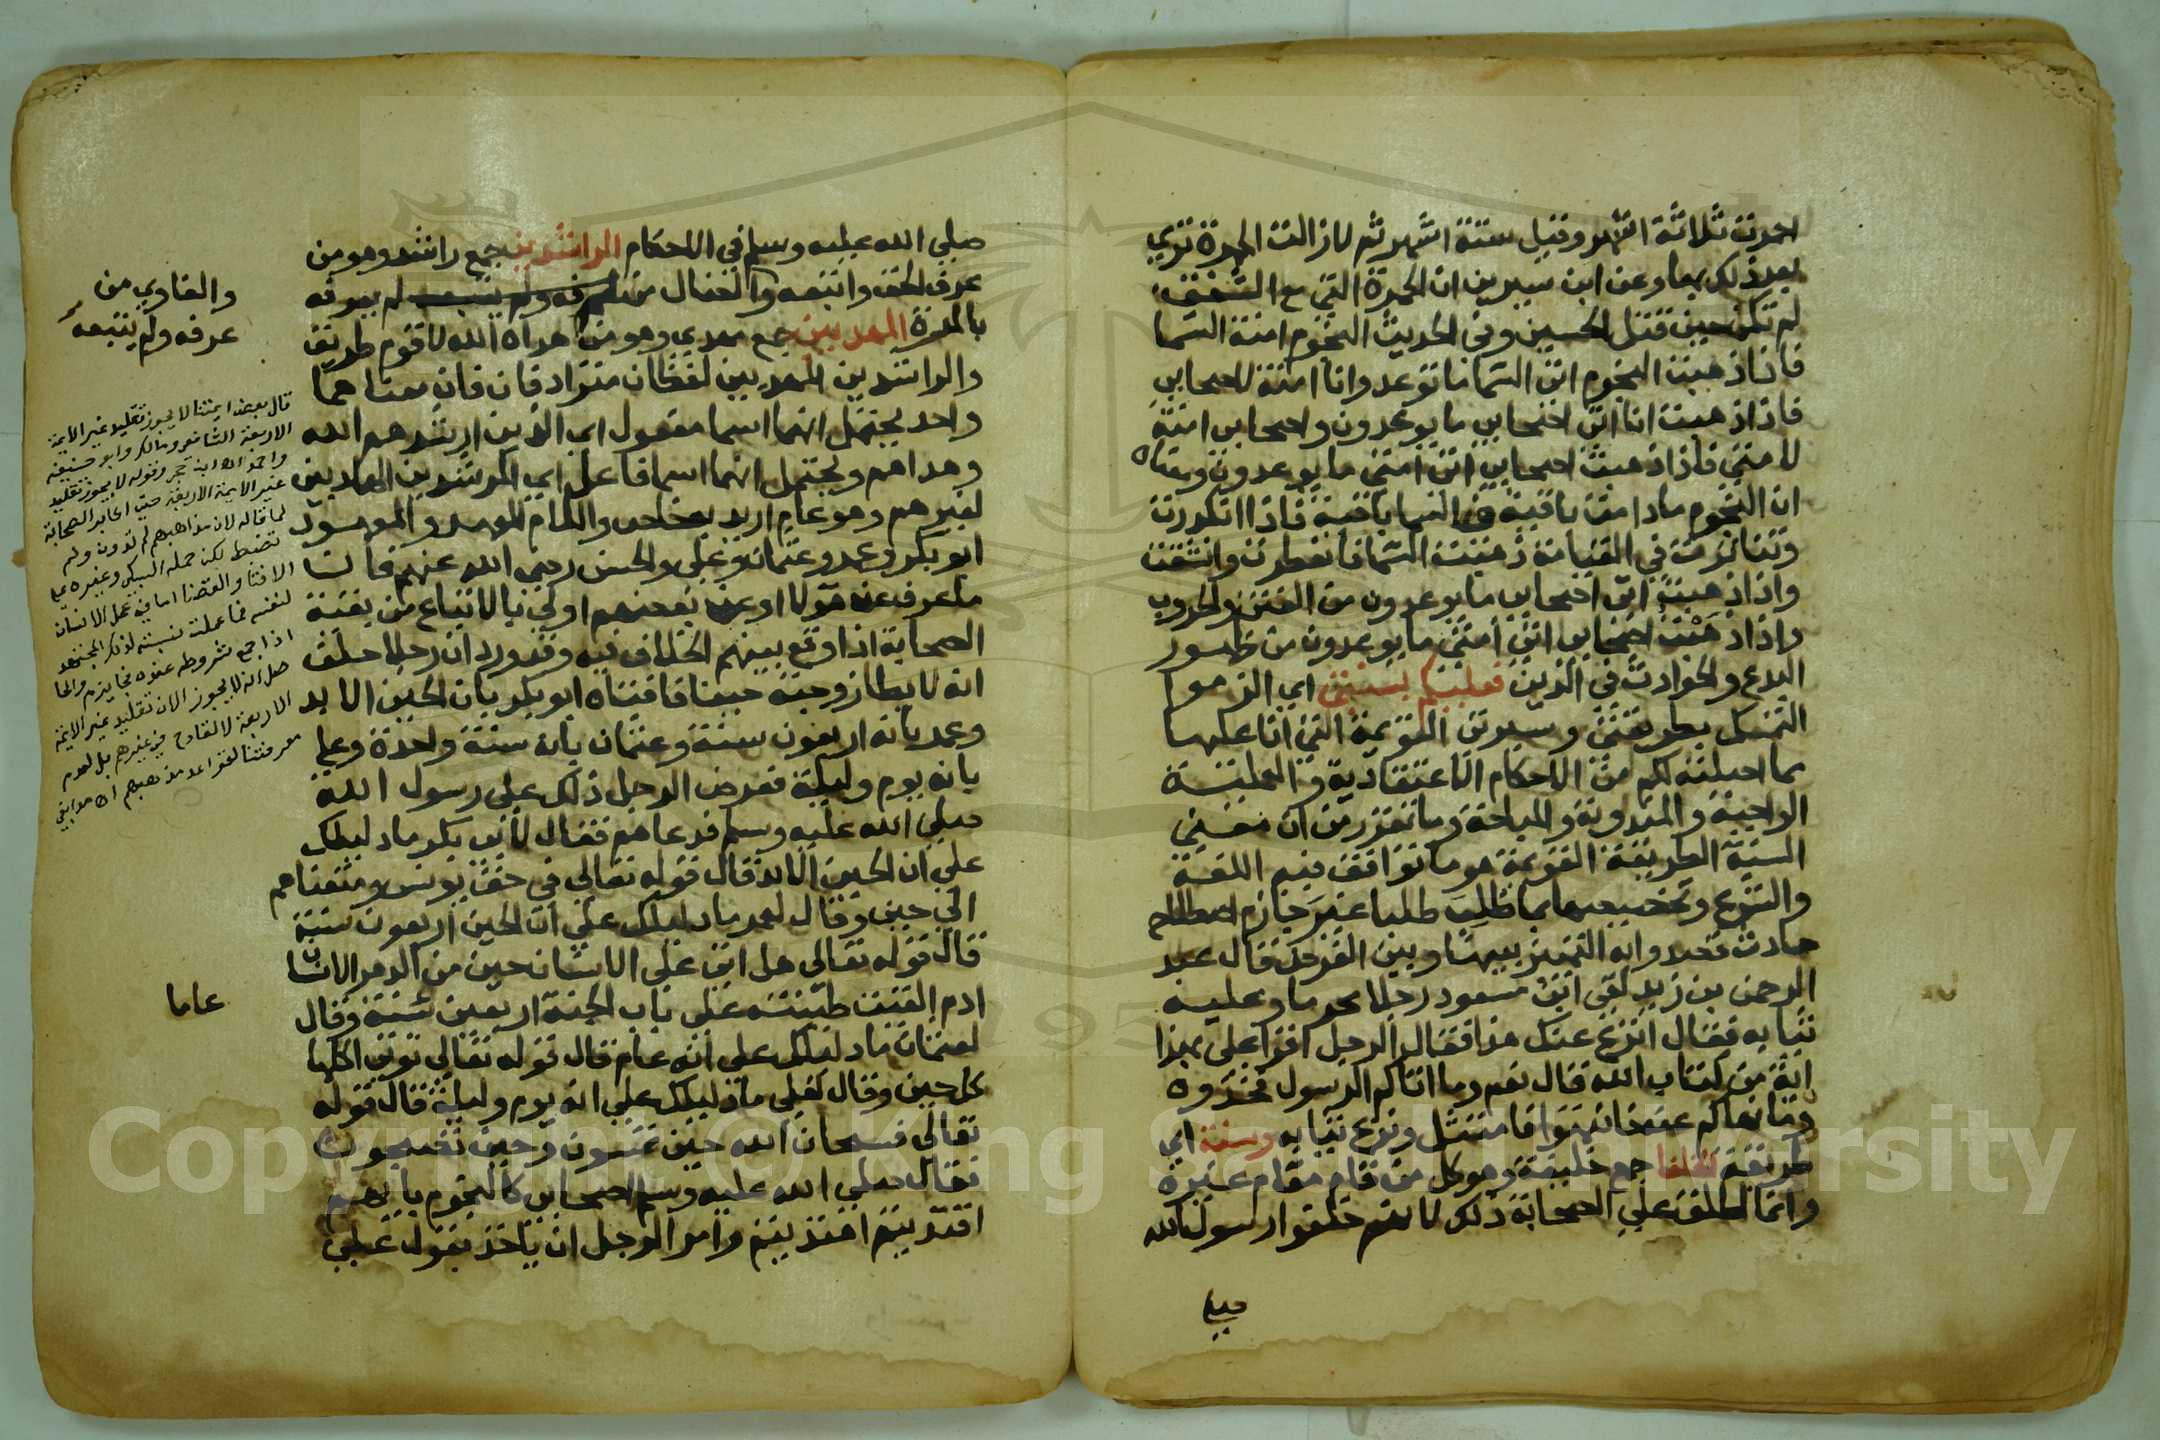 احمرت ثلاثة اشهر وقيل ستة اشهر ثم لازالت الحمرة تري
بعد ذلك بها وعن ابن سيرين ان الحمرة التي مع الشفق
لم تكن حين قتل الحسين وفي الحديث النجوم امنة السما
فاذا ذهبت النجوم اتي السما ما توعد وانا امنة لاصحابي
فاذا ذهبت انا اتي اصحابي ما يوعدون واصحابي امنة
لامتي فاذا ذهبت اصحابي اتي امتي ما يوعدون ومعناه
ان النجوم مادامت باقية السما باقية فاذا انكدرت
وتناثرت في القيامة ذهبت السما فانفطرت وانشقت
واذا ذهبت اتي اصحابي ما يوعدون من الفتن والحروب
واذا ذهبت اصحابي اتي امتي ما يوعدون من ظهور
البدع والحوادث في الدين فعليكم بسنتي اي الزموا
التمسك بطريقتي وسيرتي القويمة التي انا عليها
مما اصلته لكم من الاحكام الاعتقادية والعملية
الواجبة والمندوبة والمباحة وما تقرر من ان معني
السنة الطريقة القويمة هو ما توافقت فيه اللغة
والشرع وتخصيصها بما طلب طلبا غير جازم اصطلاح
حادث قصدوا به التمييز بينها وبين الفرض قال عبد
الرحمن بن زيد لقي ابن مسعود رجلا محرما وعليه
ثيابه فقال انزع عنك هذا فقال الرجل اقرا علي بهذا
اية من كتاب الله قال نعم وما اتاكم الرسول فخذوه
وما نهاكم عنه فانتهوا فامتثل ونزع ثيابه وسنة اي
طريقة الخلفا جمع خليفة وهو كل من قام مقام غيره
وانما اطلق علي الصحابة ذلك لانهم خلفوا رسول الله
صلي
صلي الله عليه وسلم في الاحكام الراشدين جمع راشد وهو من
عرف الحق واتبعه والضال من لم يعرفه
والغاوي من
عرفه ولم يتبعه
بالمرة المهديين جمع مهدي وهو من هداه الله لاقوم طريق
والراشدين المهديين لفظان مترادفان فان معناهما
واحد يحتمل انهما اسما مفعول اي الذين ارشدهم الله
وهداهم ويحتمل انهما اسما فاعل اي المرشدين الهاديين
لغيرهم وهو عام اريد به خاص واللام للعهد والمعهود
ابو بكر وعمر وعثمان وعلي والحسن رضي الله عنهم فان
ما عرف عن هولا او عن بعضهم اولي بالاتباع من بقية
الصحابة اذا وقع بينهم الخلاف فيه وقد ورد ان رجلا حلف
انه لا يطا زوجته حينا فافتاه ابو بكر بان الحين الابد
وعمر بانه اربعون سنة وعثمان بانه سنة واحدة وعلي
بانه يوم وليلة فعرض الرجل ذلك علي رسول الله
صلي الله عليه وسلم فدعاهم فقال لابي بكر ما دليلك
علي ان الحين الابد قال قوله تعالي في حق يونس ومتعناهم
الي حين وقال لعمر ما دليلك علي ان الحين اربعون سنة
قال قوله تعالي هل اتي علي الانسان حين من الدهر الانسان
ادم القيت طينته علي باب الجنة اربعين سنة وقال
عاما
لعثمان ما دليلك علي انه عام قال قوله تعالي توتي اكلها
كل حين وقال لعلي ما دليلك علي انه يوم وليلة قال قوله
تعالي فسبحان الله حين تمسون وحين تصبحون
فقال صلي الله عليه وسلم اصحابي كالنجوم بايهم
اقتديتم اهتديتم وامر الرجل ان ياخذ بقول علي
قال بعض ايمتنا لا يجوز تقليد غير الايمة
الاربعة الشافعي ومالك وابو حنيفة
واحمد ابن حجر وقوله لا يجوز تقليد
غير الايمة الاربعة حتي اكابر الصحابة
لما قاله لان مذاهبهم لم تدون ولم
تضبط لكن حمله السبكي وغيره علي
الافتا والقضا اما في عمل الانسان
لنفسه
اذا جمع شروطه عنده
انه لا يجوز الان تقليد غير الايمة
الاربعة لا لقادح في غيرهم بل لعدم
معرفتنا لقواعد مذهبهم
Copyright © King Saud University
195